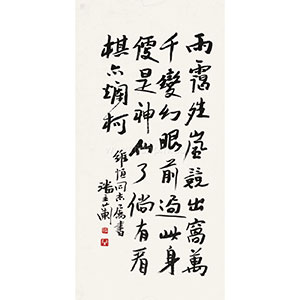 雨霽殊嵐競出窩萬
千變幻眼前過此身
便是神仙了倘有看
棋亦爛柯
維恒同志屬書
潘主蘭